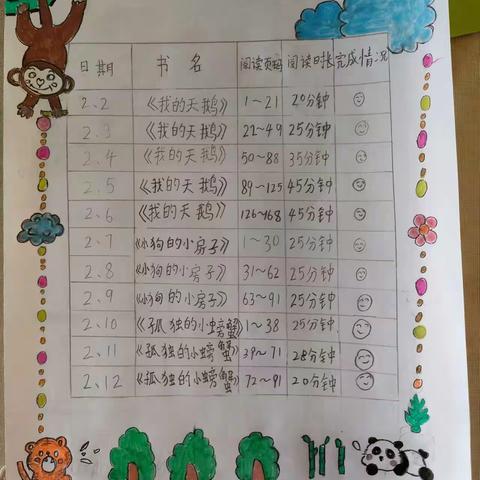 日期 书名 阅读页码 阅读时长 完成情况
2.2 《我的天鹅》 1~21 20分钟
2.3 《我的天鹅》 22~49 25分钟
2.4 《我的天鹅》 50~88 35分钟
2.5 《我的天鹅》 89~125 45分钟
2.6 《我的天鹅》 126~168 45分钟
2.7 《小狗的小房子》 1~30 25分钟
2.8 《小狗的小房子》 31~62 25分钟
2.9 《小狗的小房子》 63~91 25分钟
2.10 《孤独的小螃蟹》 1~38 25分钟
2.11 《孤独的小螃蟹》 39~71 28分钟
2.12 《孤独的小螃蟹》 72~91 20分钟